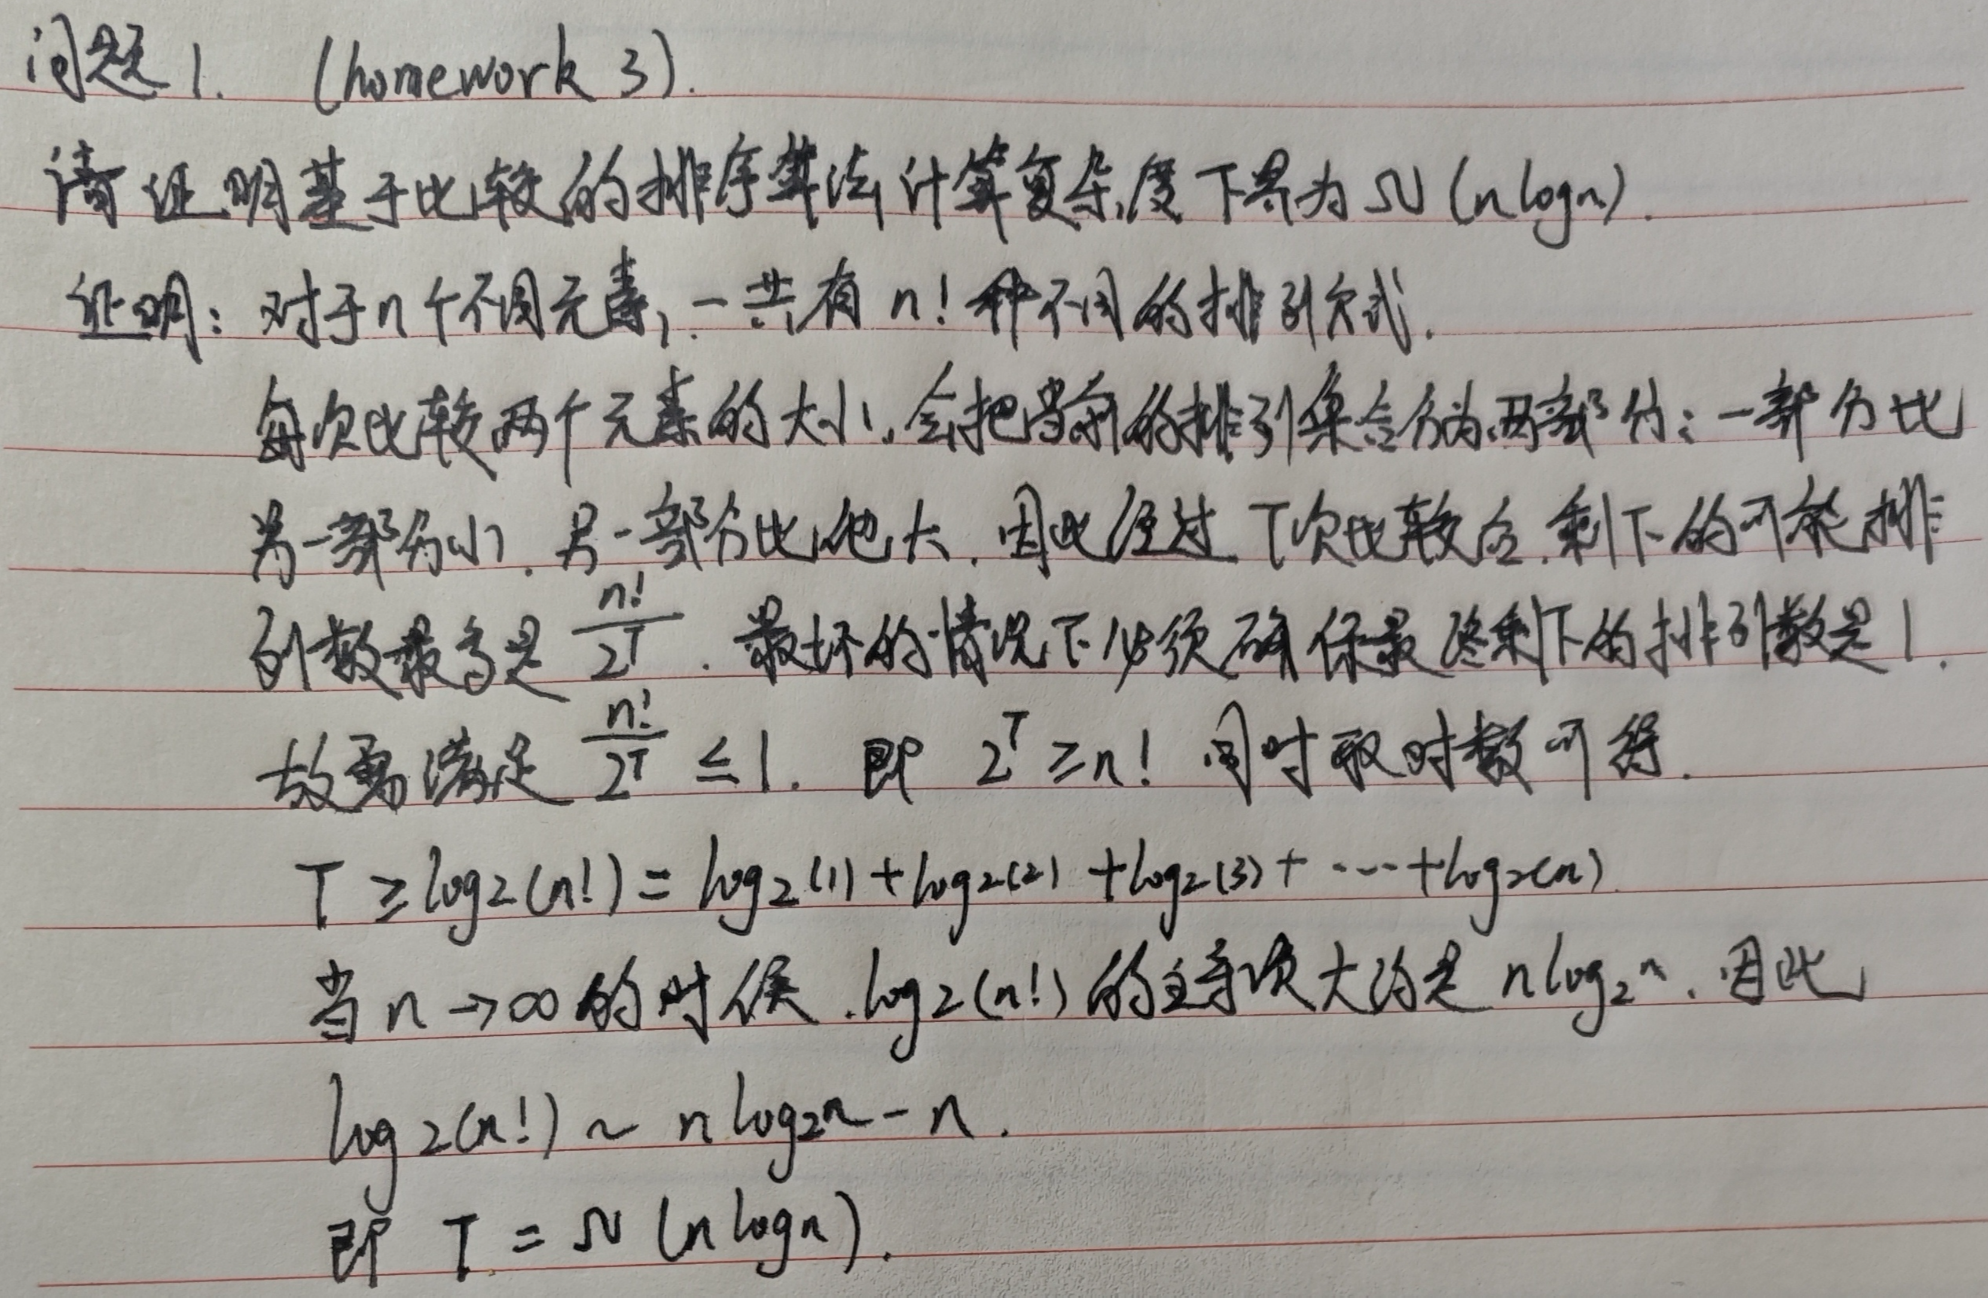 问题1. (homework 3).
请证明基于比较的排序算法计算复杂度下界为Ω(nlogn).
证明: 对于n个不同元素, 一共有 n! 种不同的排列方式.
每次比较两个元素的大小, 会把当前的排列集合分为两部分: 一部分比
另一部分小, 另一部分比他大. 因此经过 T次比较后, 剩下的可能排
列数最多是 n!/2^T. 最坏的情况下必须确保最终剩下的排列数是1.
故需满足 n!/2^T ≤ 1. 即 2^T ≥ n! 同时取对数可得.
T ≥ log2(n!) = log2(1) + log2(2) + log2(3) + ··· + log2(n)
当 n→∞ 的时候. log2(n!) 的主导项大约是 nlog2n. 因此
log2(n!) ~ nlog2n - n.
即 T = Ω(nlogn).